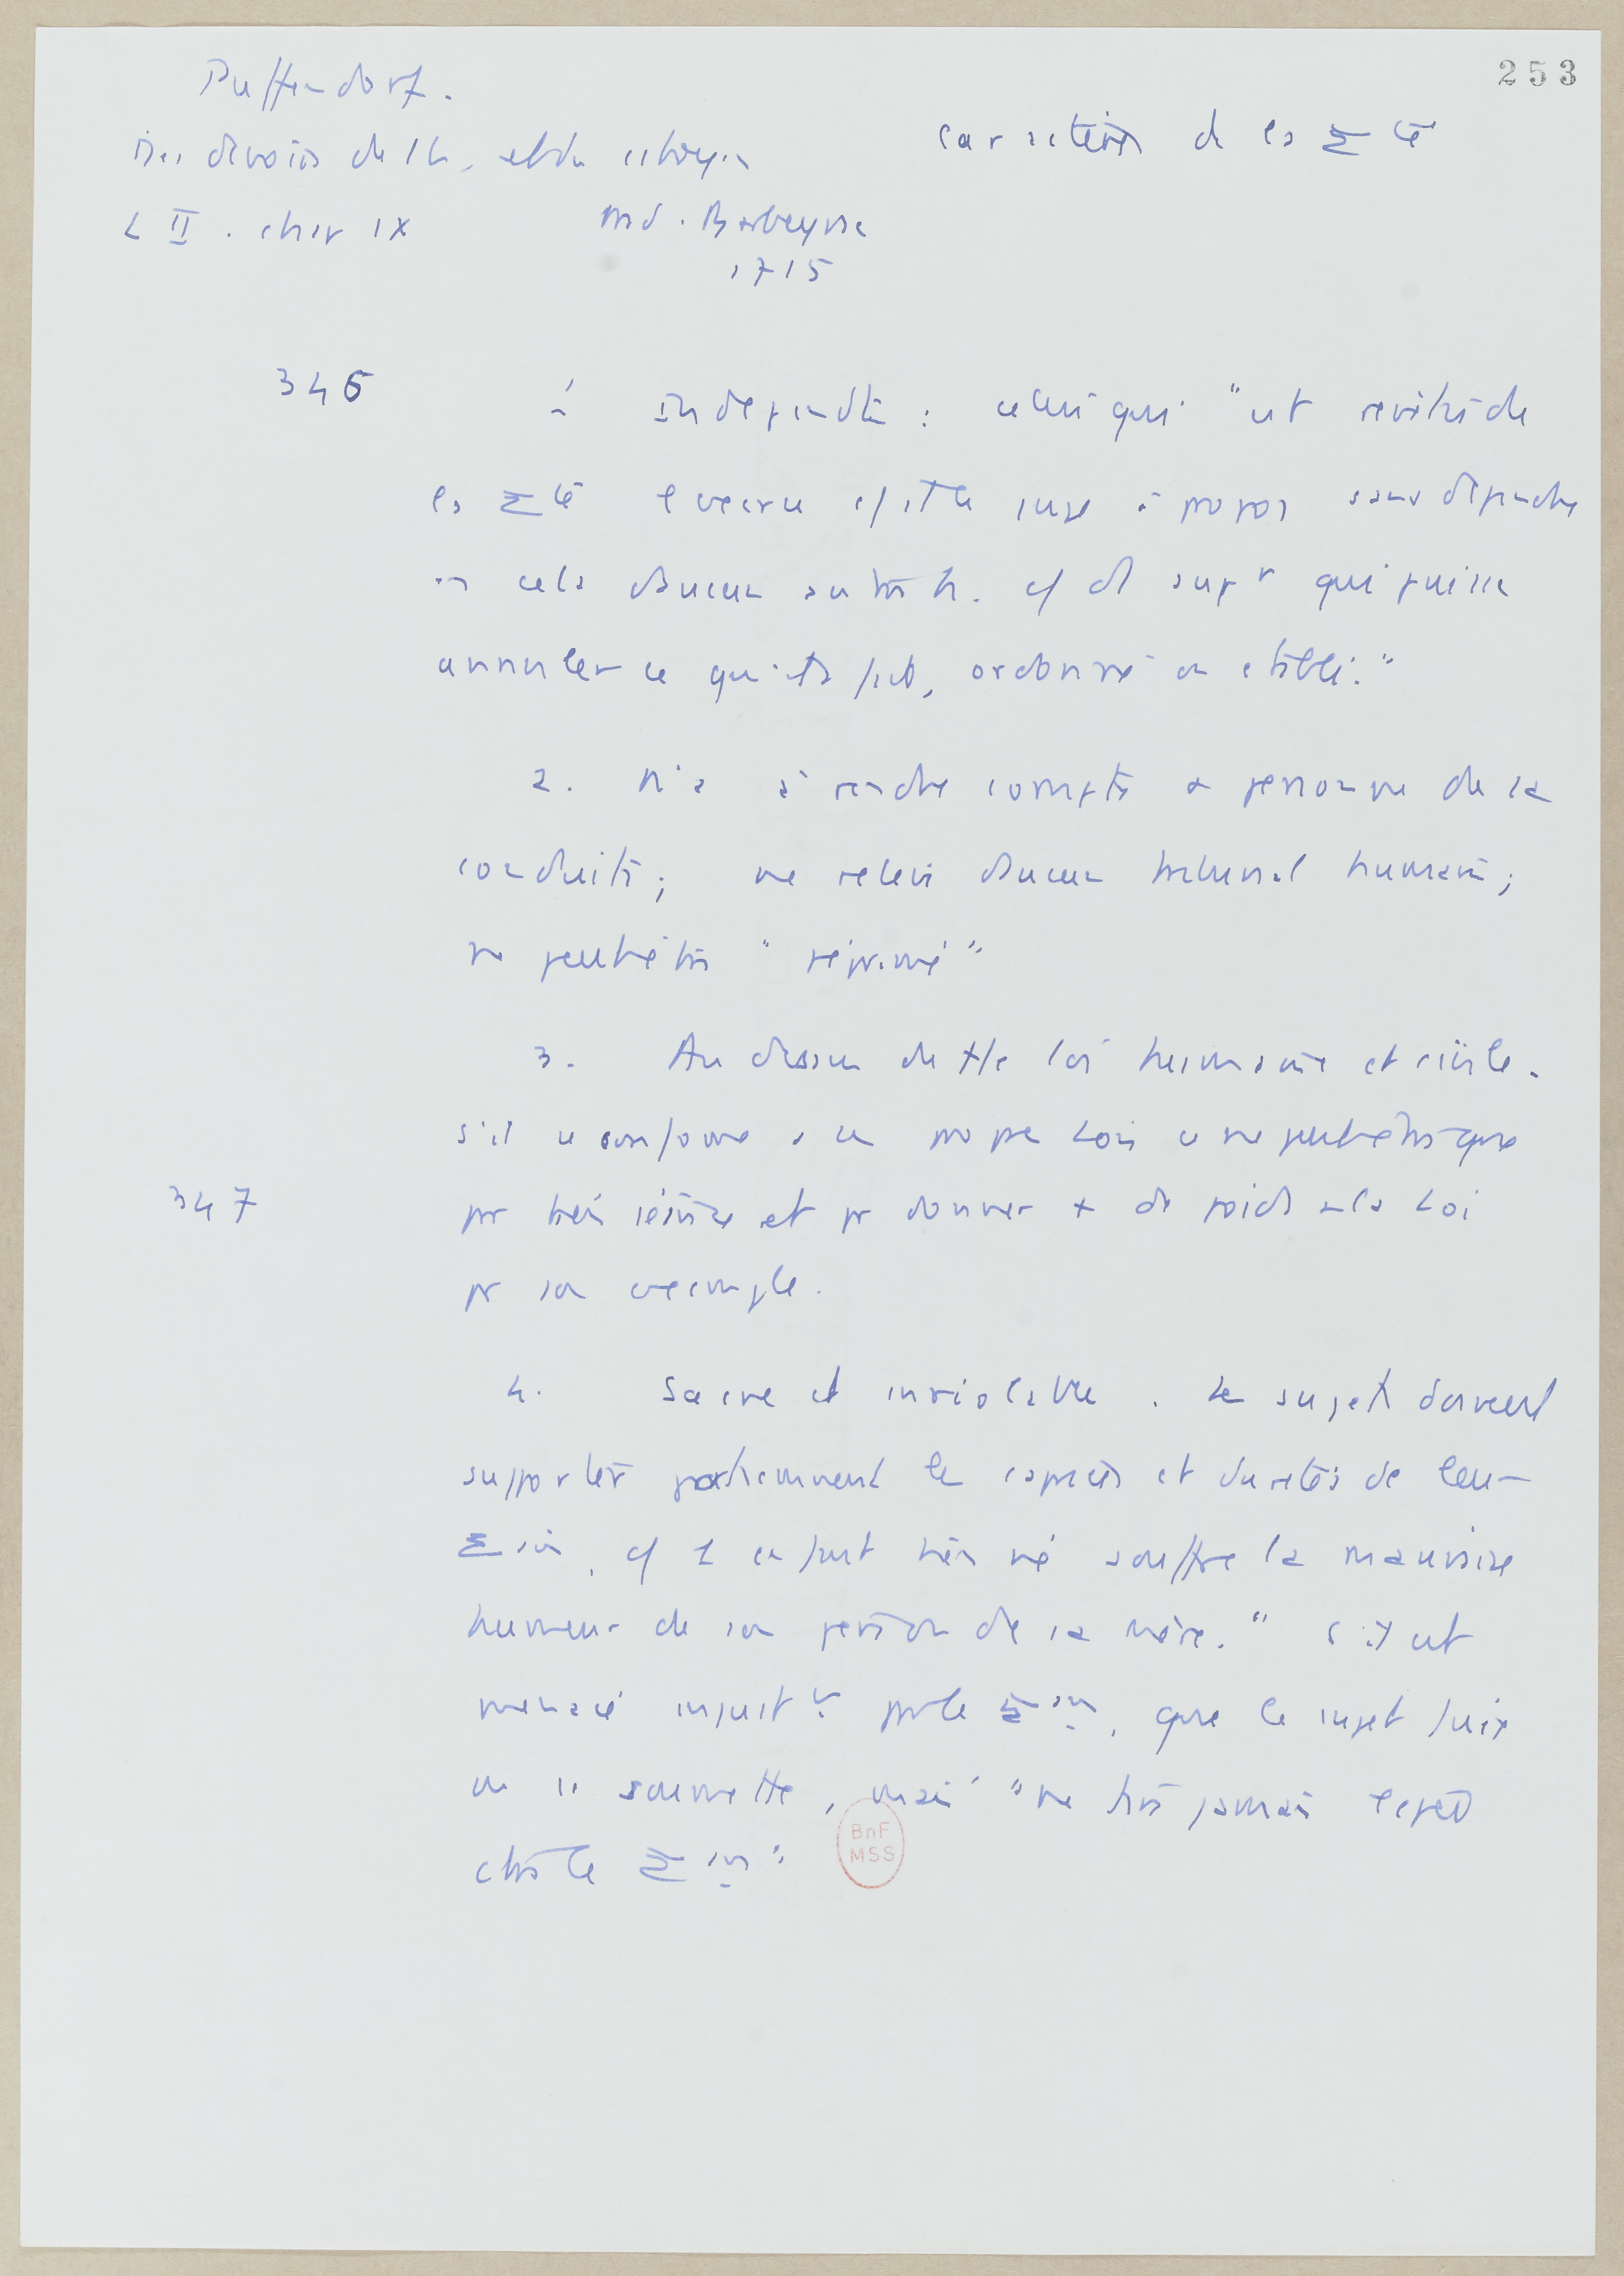 Puffendorf.
253
Des devoirs de l'h. et du citoyen
caractères de la Σ té
L II . chap IX
trad. Barbeyrac
1715
346
1 indépendte : celui qui "est revêtu de
la Σ té l'exerce c/ il le juge à propos sans dépendre
en cela d'aucun autre h. c/ d supr qui puisse
annuler ce qu'il a fait, ordonné ou établi."
2. N'a à rendre compte à personne de sa
conduite ; ne relève d'aucun tribunal humain ;
ne peut être "réprimé"
3. Au dessus de tte loi humaine et civile.
s'il se conforme à ces propres Lois ce ne peut être que
347
pr bienséance et pr donner + de poids à la Loi
pr son exemple.
4. Sacré et inviolable . Les sujets doivent
supporter patiemment les caprices et duretés de leur
Σ in, c/ 1 enfant bien né souffre la mauvaise
humeur de son père ou de sa mère." S'il est
menacé injustt par le Σ in, que le sujet fuie
ou se soumette, mais "ne tire jamais l'épée
ctre le Σ in"
BnF
MSS